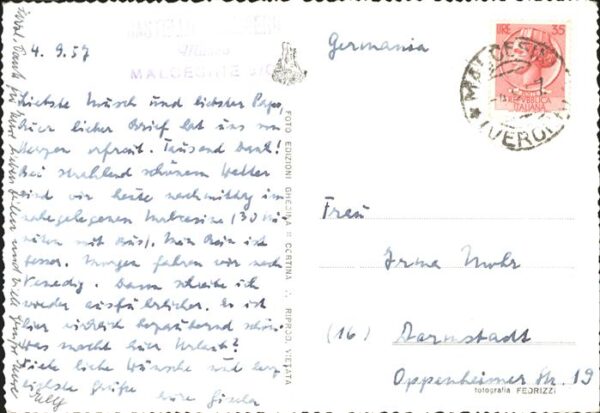 4.9.57
CASTELLO
MALCESINE
Liebste Musch und liebster Papa,
Euer lieber Brief hat uns von
Herzen erfreut. Tausend Dank!
Bei strahlend schönem Wetter
sind wir heute nachmittag im
nahegelegenen Malcesine (30 Mi-
nuten mit Bus). Mein Bein ist
besser. Morgen fahren wir nach
Venedig. Dann schreibe ich
wieder ausführlicher. Es ist
hier wirklich bezaubernd schön.
Was macht Euer Urlaub?
Viele liebe Wünsche und herz-
lichste Grüße
Eure Gisela
FOTO EDIZIONI GHEDINA - CORTINA - RIPROD. VIETATA
Germania
LIRE 35
REPVBBLICA
ITALIANA
MALCESINE
(VERONA)
Frau
Irma Mohr
(16) Darmstadt
Oppenheimer Str. 19
fotografia FEDRIZZI